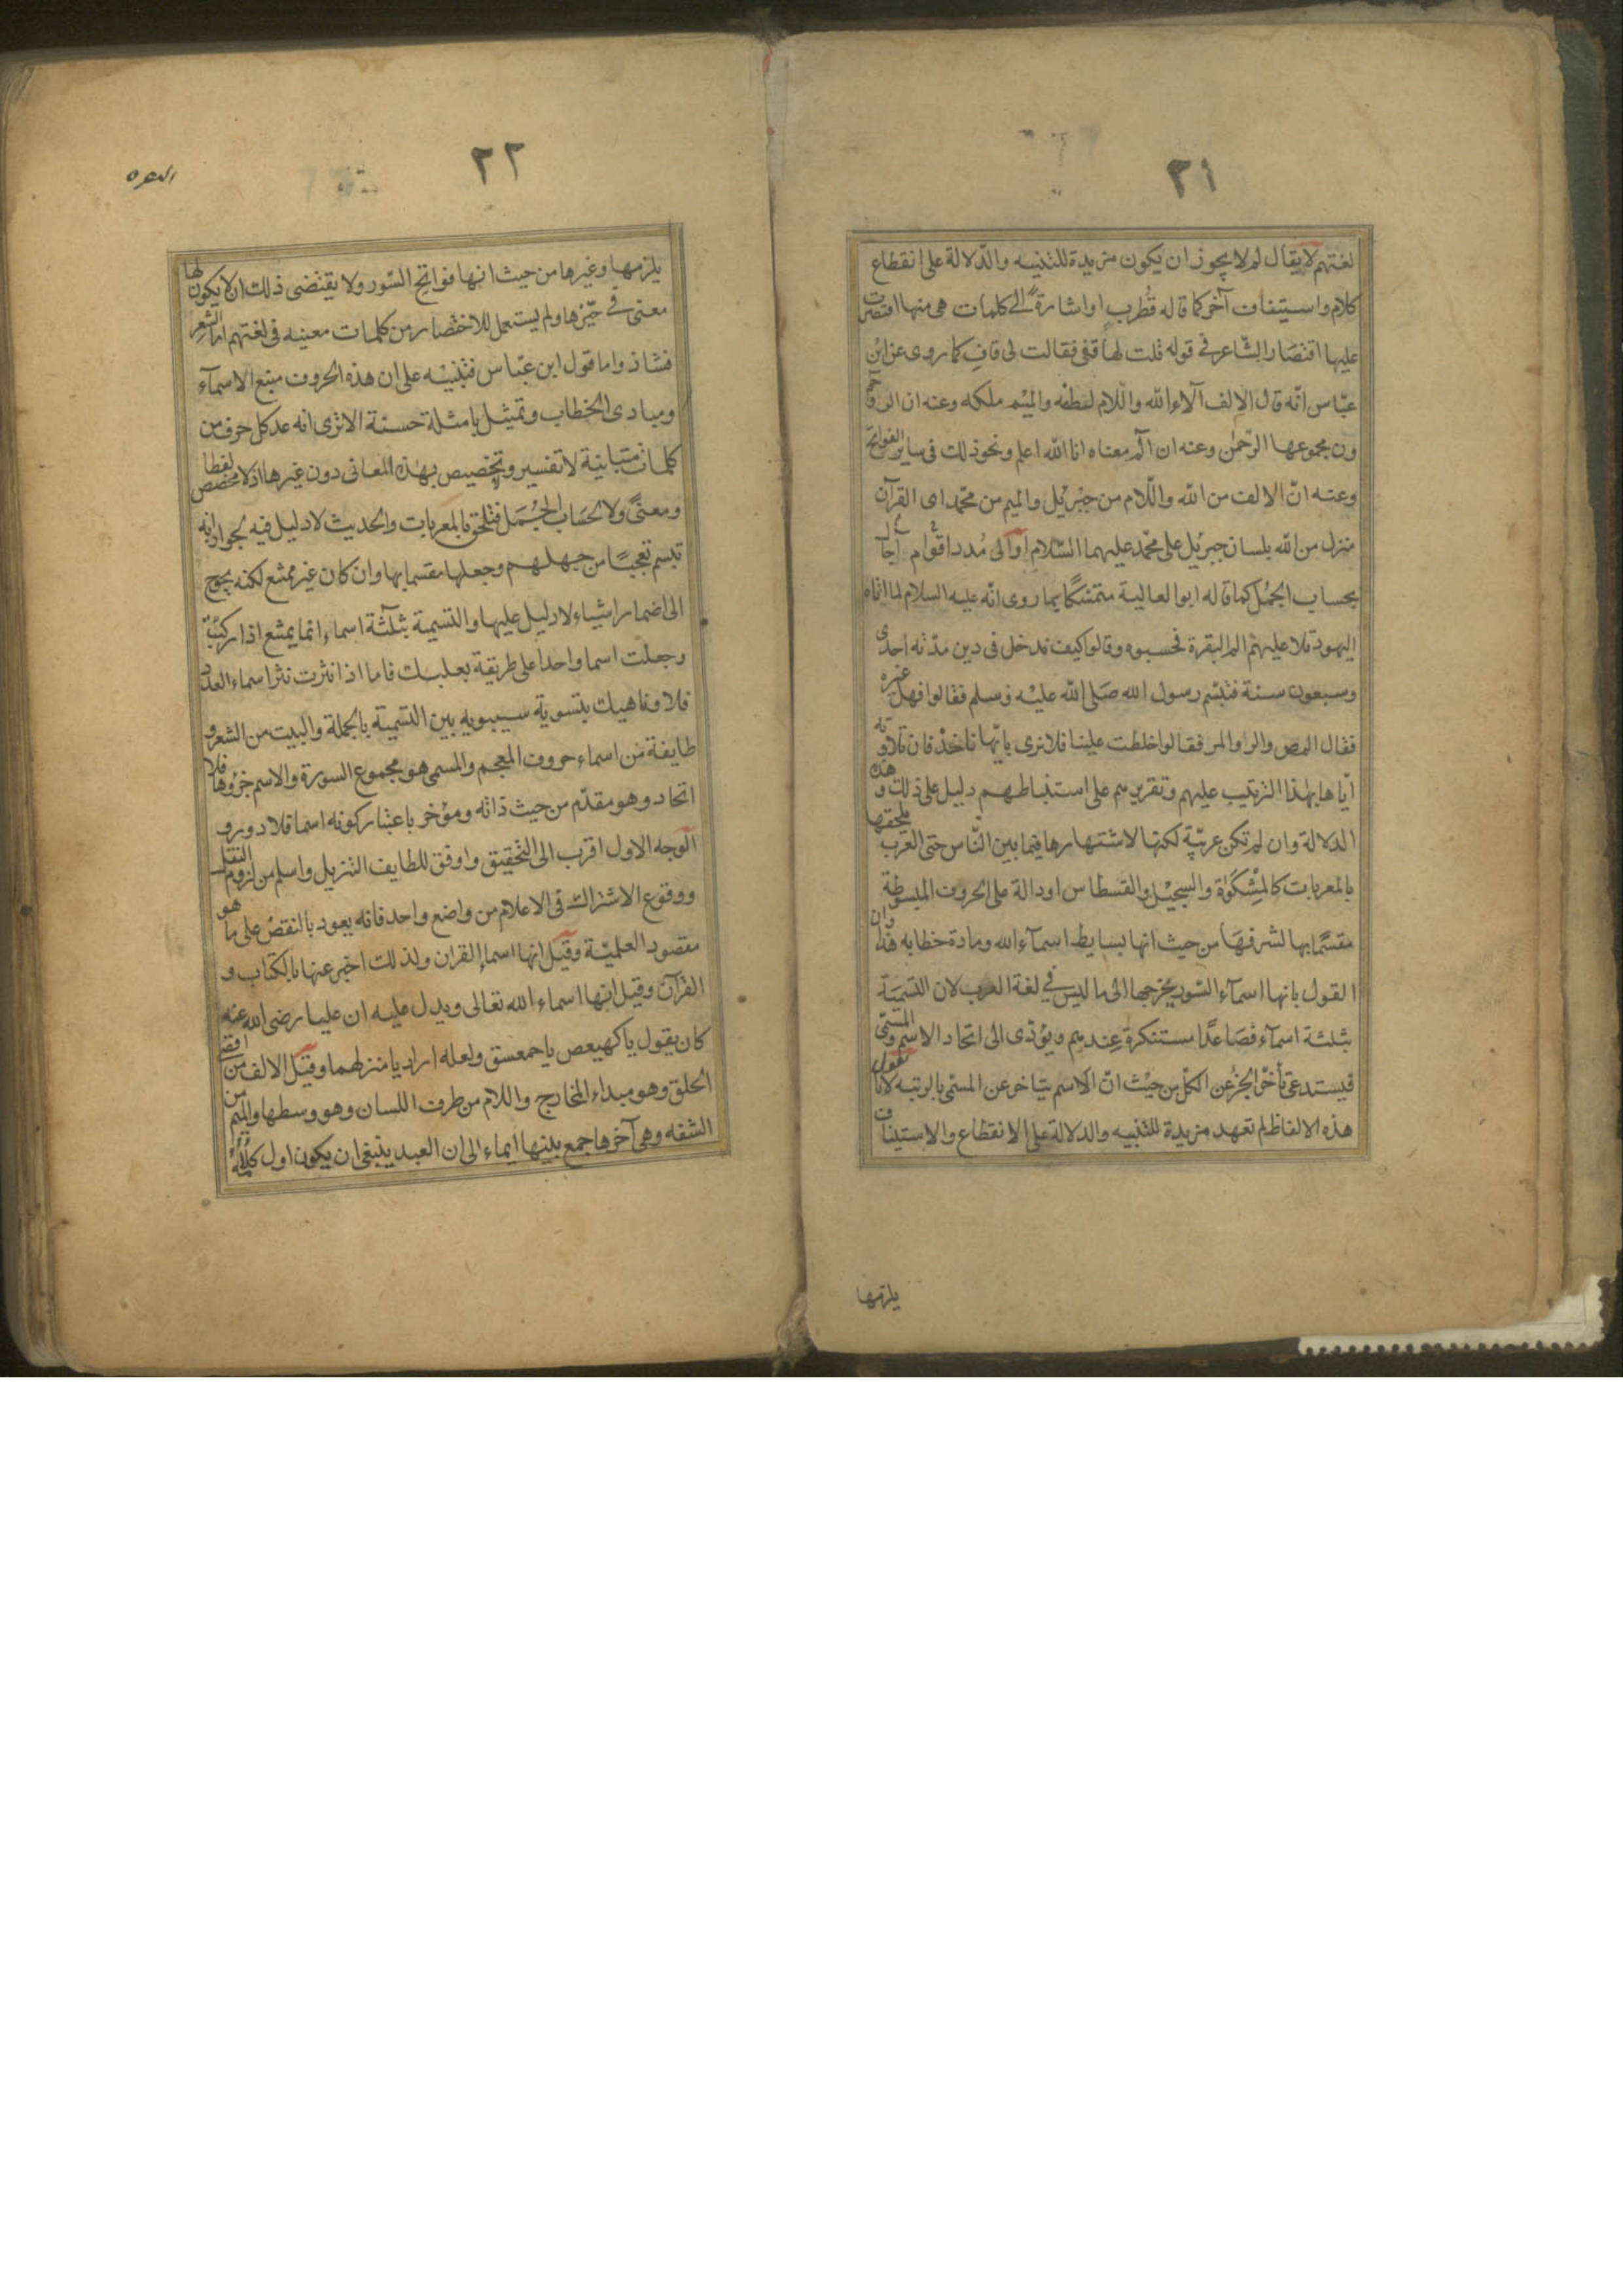 ٢١
لغتهم لا يقال لم لا يجوز ان يكون مزيدة للتنبيه والدّلالة على انقطاع
كلام واستيناف آخر كما قاله قُطرب او اشارةً الى كلمات هى منها اقتصرت
عليها اقتصار الشّاعر فى قوله قلت لها قفى فقالت لى قاف كما روى عن ابن
عبّاس انّه قال الالف آلاء الله واللّام لطفه والميم ملكه وعنه ان الر وحم
ون مجموعها الرّحمٰن وعنه ان الم معناه انا الله اعلم ونحو ذلك فى ساير الفواتح
وعنه انّ الالف من الله واللّام من جبرئيل والميم من محمّد اى القرآن
منزل من الله بلسان جبرئيل على محمّد عليهما السّلام او الى مُدد اقوام وآجال
بحساب الجمّل كما قاله ابو العالية متمسّكًا بما روى انّه عليه السلام لما اتاه
اليهود تلا عليهم الم البقرة فحسبوه وقالوا كيف ندخل فى دين مدّته احدى
وسبعون سنة فتبسّم رسول الله صَلى الله عليْه وسلم فقالوا فهل غيره
فقال المص والر والمر فقالوا خلطت علينا فلا ندرى بايّها ناخذ فان تلاوته
ايّاها بهذا الترتيب عليهم وتقريرهم على استنباطهم دليل على ذلك وهذه
الدلالة وان لم تكن عربيّة لكنها لاشتهارها فيما بين النّاس حتى العرب تلحقها
بالمعربات كالمِشْكوٰة والسجيْل والقسطاس او دالة على الحروف المبسوطة
مقسَمًا بها لشرفهَا من حيث انها بسايط اسمآء الله ومادة خطابه هذا وان
القول بانها اسمآء السّور يخرجها الى ما ليس فى لغة العرب لان التّسميَة
بثلثة اسمآء فصَاعدًا مستنكرة عندهم ويؤدّى الى اتحاد الاسم والمسمّى
فيستدعى تأخّر الجزء عن الكلّ من حيْث انّ الاسم يتاخر عن المسمّى بالرتبه لانا نقول
هذه الالفاظ لم تعهد مزيدة للتنبيه والدلالة على الانقطاع والاستيناف
يلزمها
٢٢
البقره
يلزمها وغيرها من حيث انها فواتح السّور ولا يقتضى ذلك ان لا يكون لها
معنى فى حيّزها ولم يستعمل للاختصار من كلمات معينه فى لغتهم اما الشعر
فشاذ واما قول ابن عبّاس فتنبيْه على ان هذه الحروف منبع الاسمآء
ومبادى الخطاب وتمثيل بامثلة حسنة الا ترى انه عد كل حرف من
كلمات متباينة لا تفسير وتخصيص بهذه المعانى دون غيرها اذ لا مخصص لفظا
ومعنىً ولا لحسَاب الجُمَل فتلحق بالمعربات والحديث لا دليل فيه لجواز انه
تبسم تعجبًا من جهلهم وجعلها مقسما بها وان كان غير ممتنع لكنه يحوج
الى اضمار اشياء لا دليل عليها والتسمية بثلثة اسماء انما يمتنع اذا ركّبت
وجعلت اسما واحدا على طريقة بعلبك فاما اذا نثرت نثر اسماء العدد
فلا وناهيك بتسوية سيبويه بين التسمية بالجملة والبيت من الشعر و
طايفة من اسماء حروف المعجم والمسمى هو مجموع السورة والاسم جزؤها فلا
اتحاد وهو مقدّم من حيث ذاته ومؤخر باعتبار كونه اسما فلا دور و
الوجه الاول اقرب الى التحقيق واوفق للطايف التنزيل واسلم من لزوم النقل
ووقوع الاشتراك فى الاعلام من واضع واحد فانه يعود بالنقض على ما هو
مقصود العلميّة وقيل انها اسماء القران ولذلك اخبر عنها بالكتاب و
القرآن وقيل انها اسماء الله تعالى ويدل عليه ان عليا رضى الله عنه
كان يقول يا كهيعص يا حمعسق ولعله اراد يا منزلهما وقيل الالف من اقصى
الحلق وهو مبداء المخارج واللام من طرف اللسان وهو وسطها والميم من
الشفه وهى آخرها جمع بينها ايماء الى ان العبد ينبغى ان يكون اول كلامه